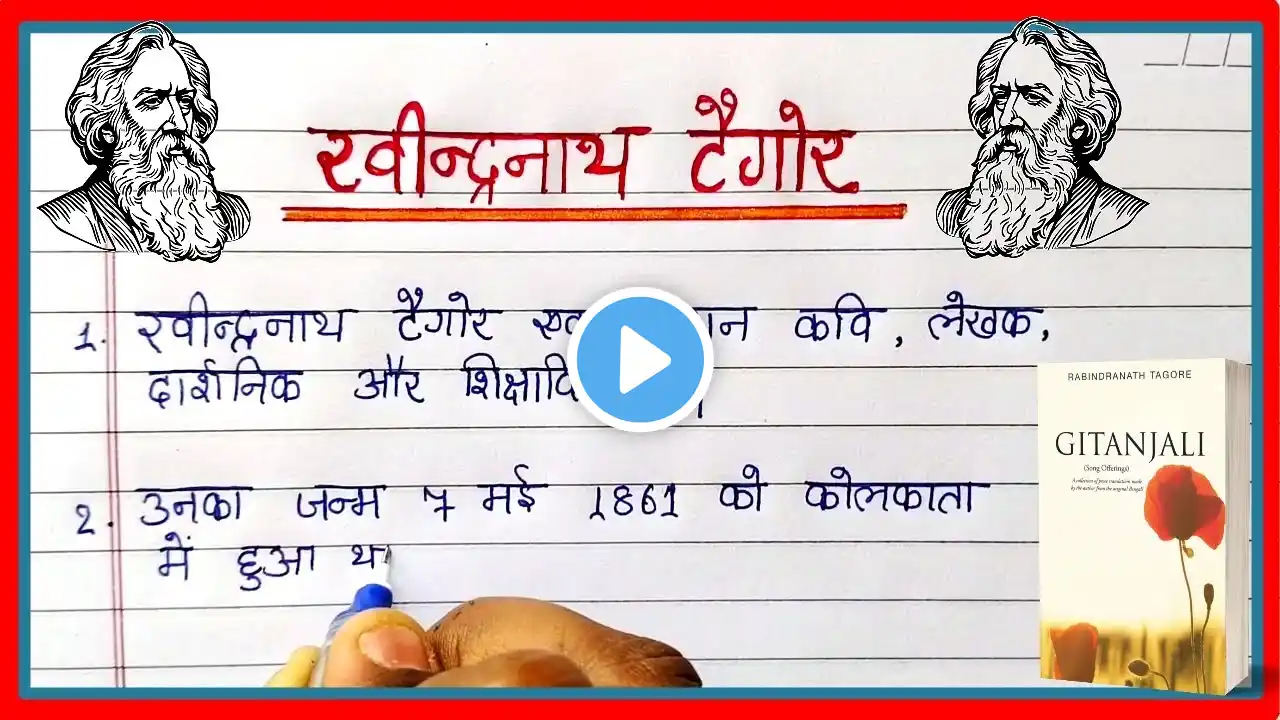 रवीन्द्रनाथ टैगोर
1. रवीन्द्रनाथ टैगोर कवि, लेखक,
दार्शनिक और
2. उनका जन्म 7 मई 1861 को कोलकाता
में हुआ
RABINDRANATH TAGORE
GITANJALI
(Song Offerings)
A collection of prose translations made
by the author from the original Bengali